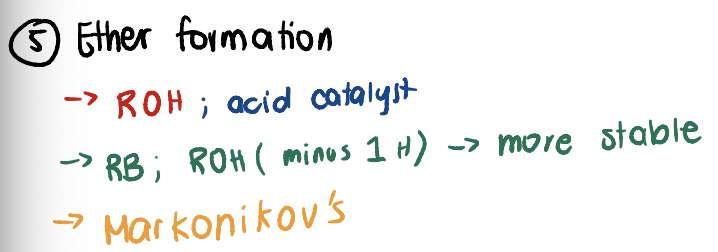 ⑤ Ether formation
-> ROH ; acid catalyst
-> RB ; ROH ( minus 1 H) -> more stable
-> Markonikov's